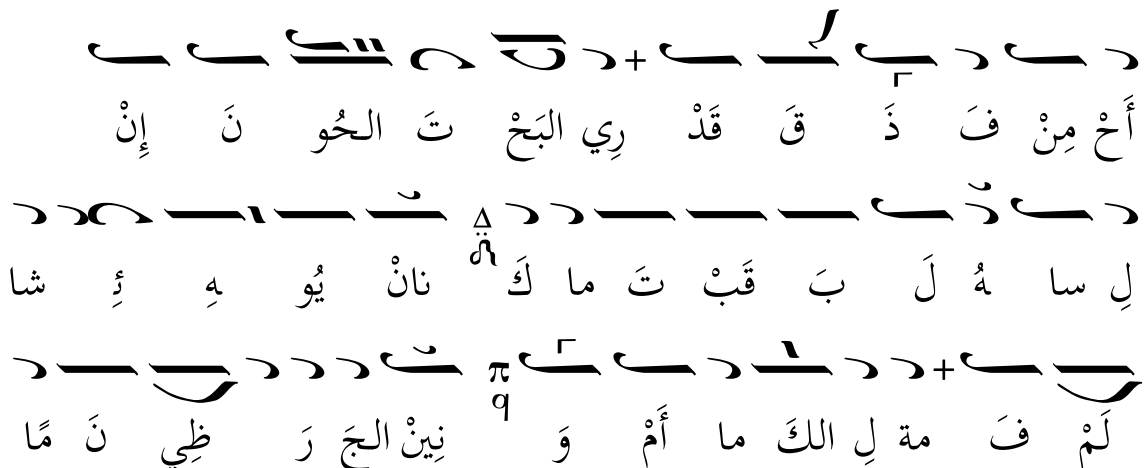 أَحْ مِنْ فَ ذَ قَ قَدْ رِي البَحْ تَ الحُو نَ إِنْ
لِ سا هُ لَ بَ قَبْ تَ ما كَ Δ نانْ يُو هِ ئِ شا
لَمْ فَ مة لِ الكَ ما أَمْ وَ π q نِينْ الجَ رَ ظِي نَ مًا